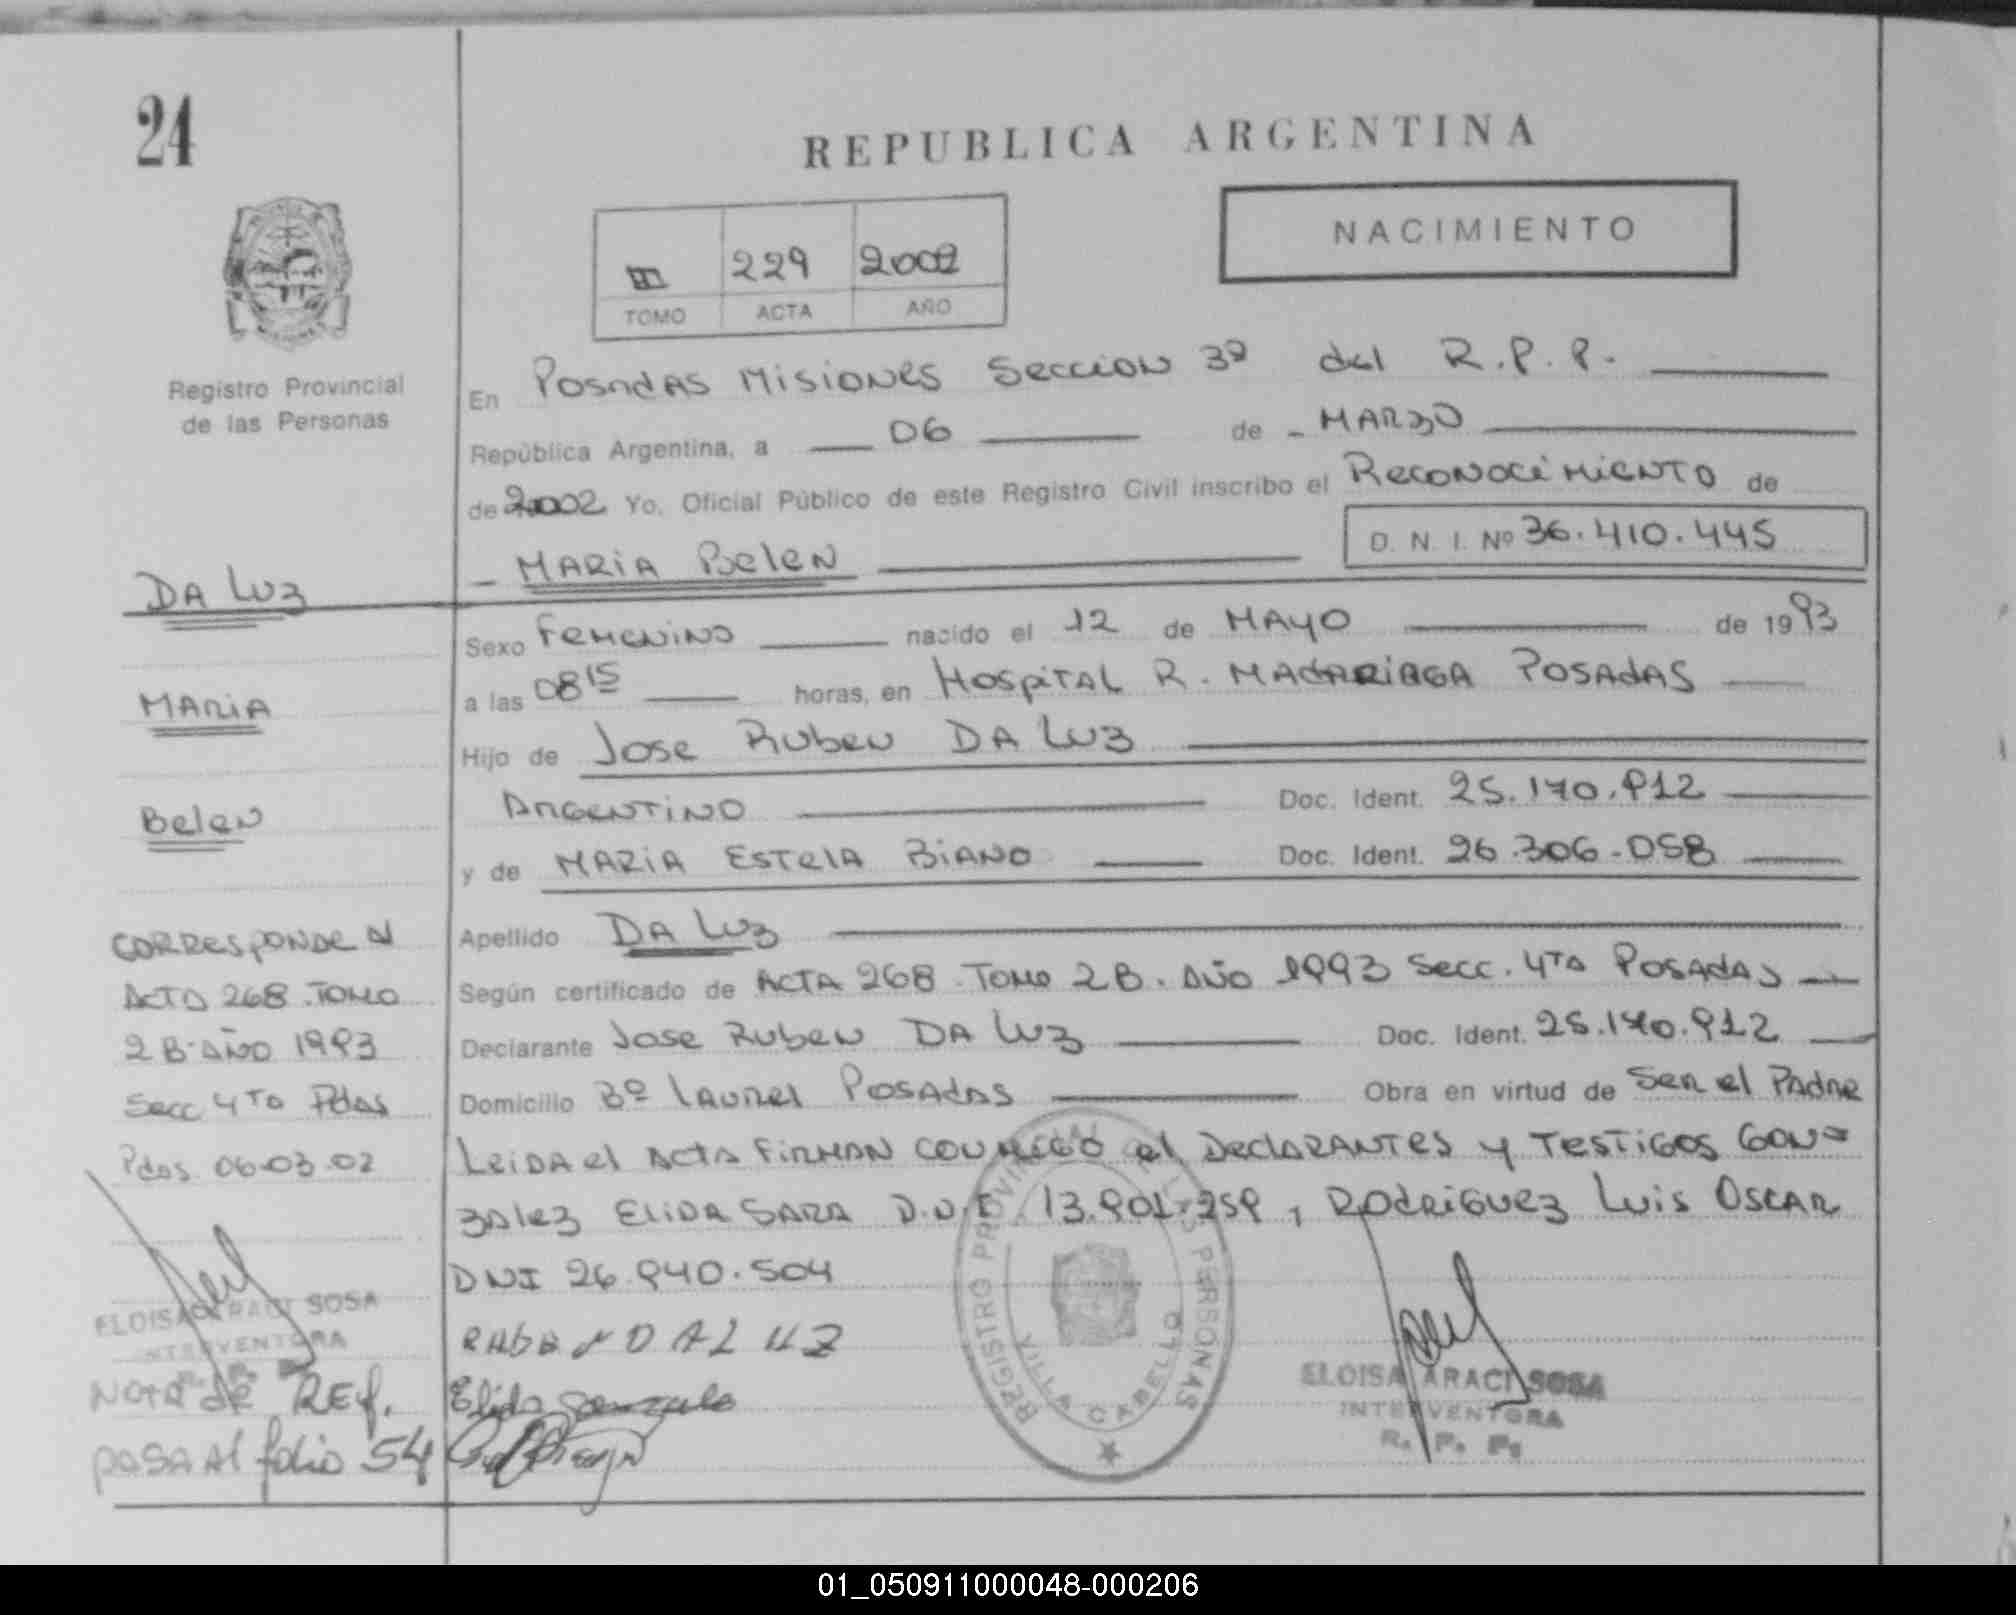 24
REPUBLICA ARGENTINA
NACIMIENTO
III 229 2002
TOMO ACTA AÑO
Registro Provincial
de las Personas
En Posadas Misiones Seccion 3º del R.P.P.
República Argentina, a 06 de MARZO
de 2002 Yo, Oficial Público de este Registro Civil inscribo el Reconocimiento de
MARIA Belen D. N. I. Nº 36.410.445
DA LUZ
MARIA
Belen
Sexo Femenino nacido el 12 de MAYO de 1993
a las 08 15 horas, en Hospital R. MADARIAGA POSADAS
Hijo de Jose Ruben DA LUZ
ARGENTINO Doc. Ident. 25.170.912
y de MARIA ESTELA BIANO Doc. Ident. 26.306.058
Apellido DA LUZ
Según certificado de ACTA 268. TOMO 2B. AÑO 1993 Secc. 4TA POSADAS
Declarante Jose Ruben DA LUZ Doc. Ident. 25.170.912
Domicilio Bº Laurel POSADAS Obra en virtud de Ser el Padre
Leida el ACTA FIRMAN CONMIGO el DECLARANTES y TESTIGOS GON=
zalez ELIDA SARA D.N.I. 13.901.259, RODRIGUEZ Luis OSCAR
DNI 26.940.504
CORRESPONDE A
ACTA 268. TOMO
2B. AÑO 1993
Secc 4TA Pdas
Pdas. 06-03-02
ELOISA ARACI SOSA
INTERVENTORA
NOTA de REF.
PASA Al folio 54
DALUZ
Elida Gonzalez
REGISTRO PROVINCIAL DE LAS PERSONAS
VILLA CABELLO
ELOISA ARACI SOSA
INTERVENTORA
R. P. P.
01_050911000048-000206